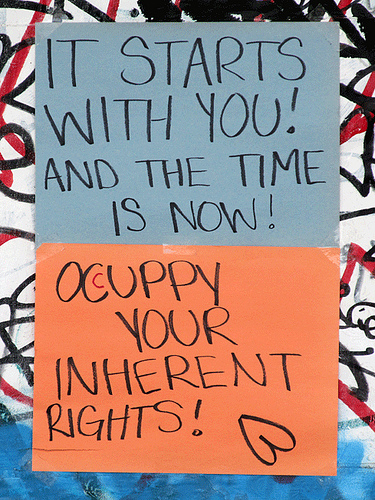 IT STARTS
WITH YOU!
AND THE TIME
IS NOW!
OCCUPPY
YOUR
INHERENT
RIGHTS!